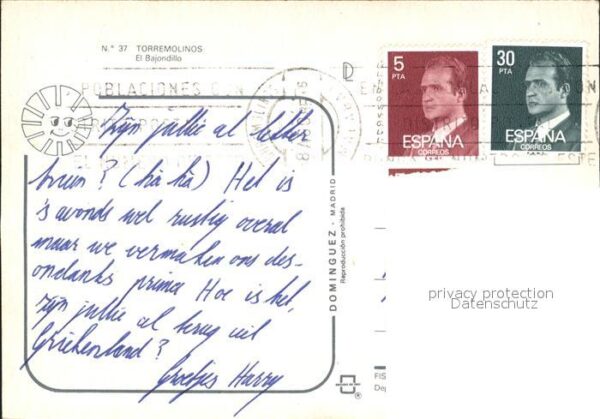 N.° 37 TORREMOLINOS
El Bajondillo
POBLACIONES CON
5
PTA
ESPAÑA
CORREOS
30
PTA
ESPAÑA
CORREOS
Zijn jullie al lekker
bruin? (ha ha) Het is
's avonds wel rustig overal
maar we vermaken ons des-
ondanks prima Hoe is het,
zijn jullie al terug uit
Griekenland?
Groetjes Harry
DOMINGUEZ - MADRID
Reproducción prohibida
FIS
Dep
privacy protection
Datenschutz